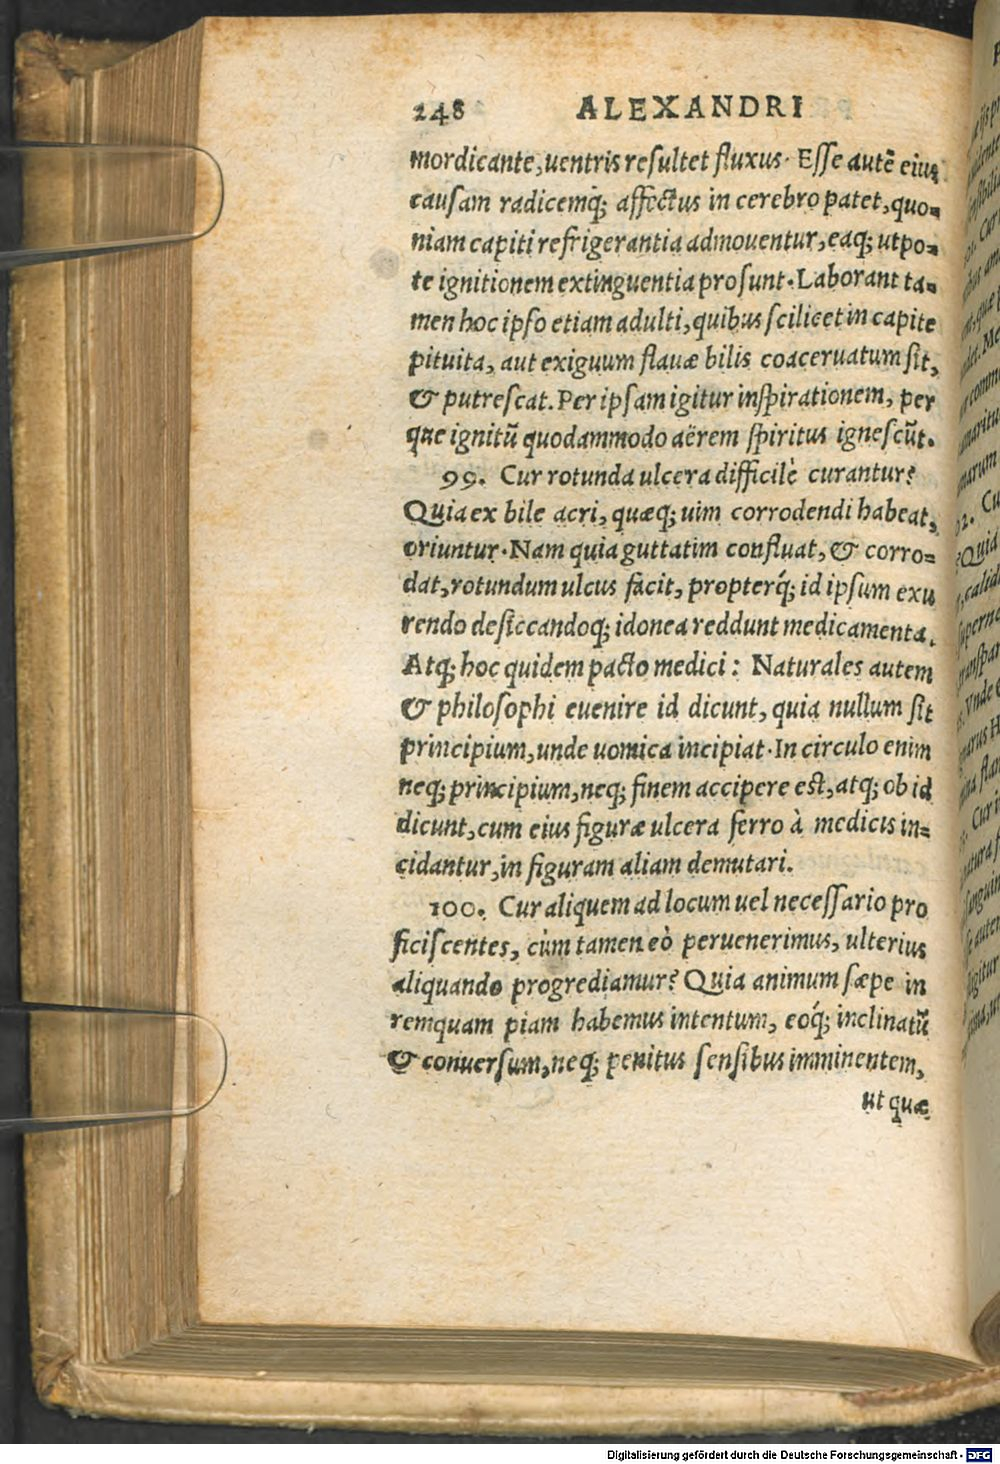 248 ALEXANDRI
mordicante, uentris resultet fluxus. Esse autẽ eius
causam radicemq́; affectus in cerebro patet, quo=
niam capiti refrigerantia admouentur, eaq́; utpo=
te ignitionem extinguentia prosunt. Laborant ta=
men hoc ipso etiam adulti, quibus scilicet in capite
pituita, aut exiguum flauæ bilis coaceruatum sit,
& putrescat. Per ipsam igitur inspirationem, per
que ignitũ quodammodo aërem spiritus ignescũt.
99. Cur rotunda ulcera difficilè curantur?
Quia ex bile acri, quæq; uim corrodendi habeat,
oriuntur. Nam quia guttatim confluat, & corro=
dat, rotundum ulcus facit, propterq́; id ipsum exu
rendo desiccandoq́; idonea reddunt medicamenta.
Atq; hoc quidem pacto medici: Naturales autem
& philosophi euenire id dicunt, quia nullum sit
principium, unde uomica incipiat. In circulo enim
neq; principium, neq; finem accipere est, atq; ob id
dicunt, cum eius figuræ ulcera ferro à medicis in=
cidantur, in figuram aliam demutari.
100. Cur aliquem ad locum uel necessario pro
ficiscentes, cùm tamen eò peruenerimus, ulterius
aliquando progrediamur? Quia animum sæpe in
remquam piam habemus intentum, eoq́; inclinatũ
& conuersum, neq; penitus sensibus imminentem,
ut quæ
Digitalisierung gefördert durch die Deutsche Forschungsgemeinschaft - DFG